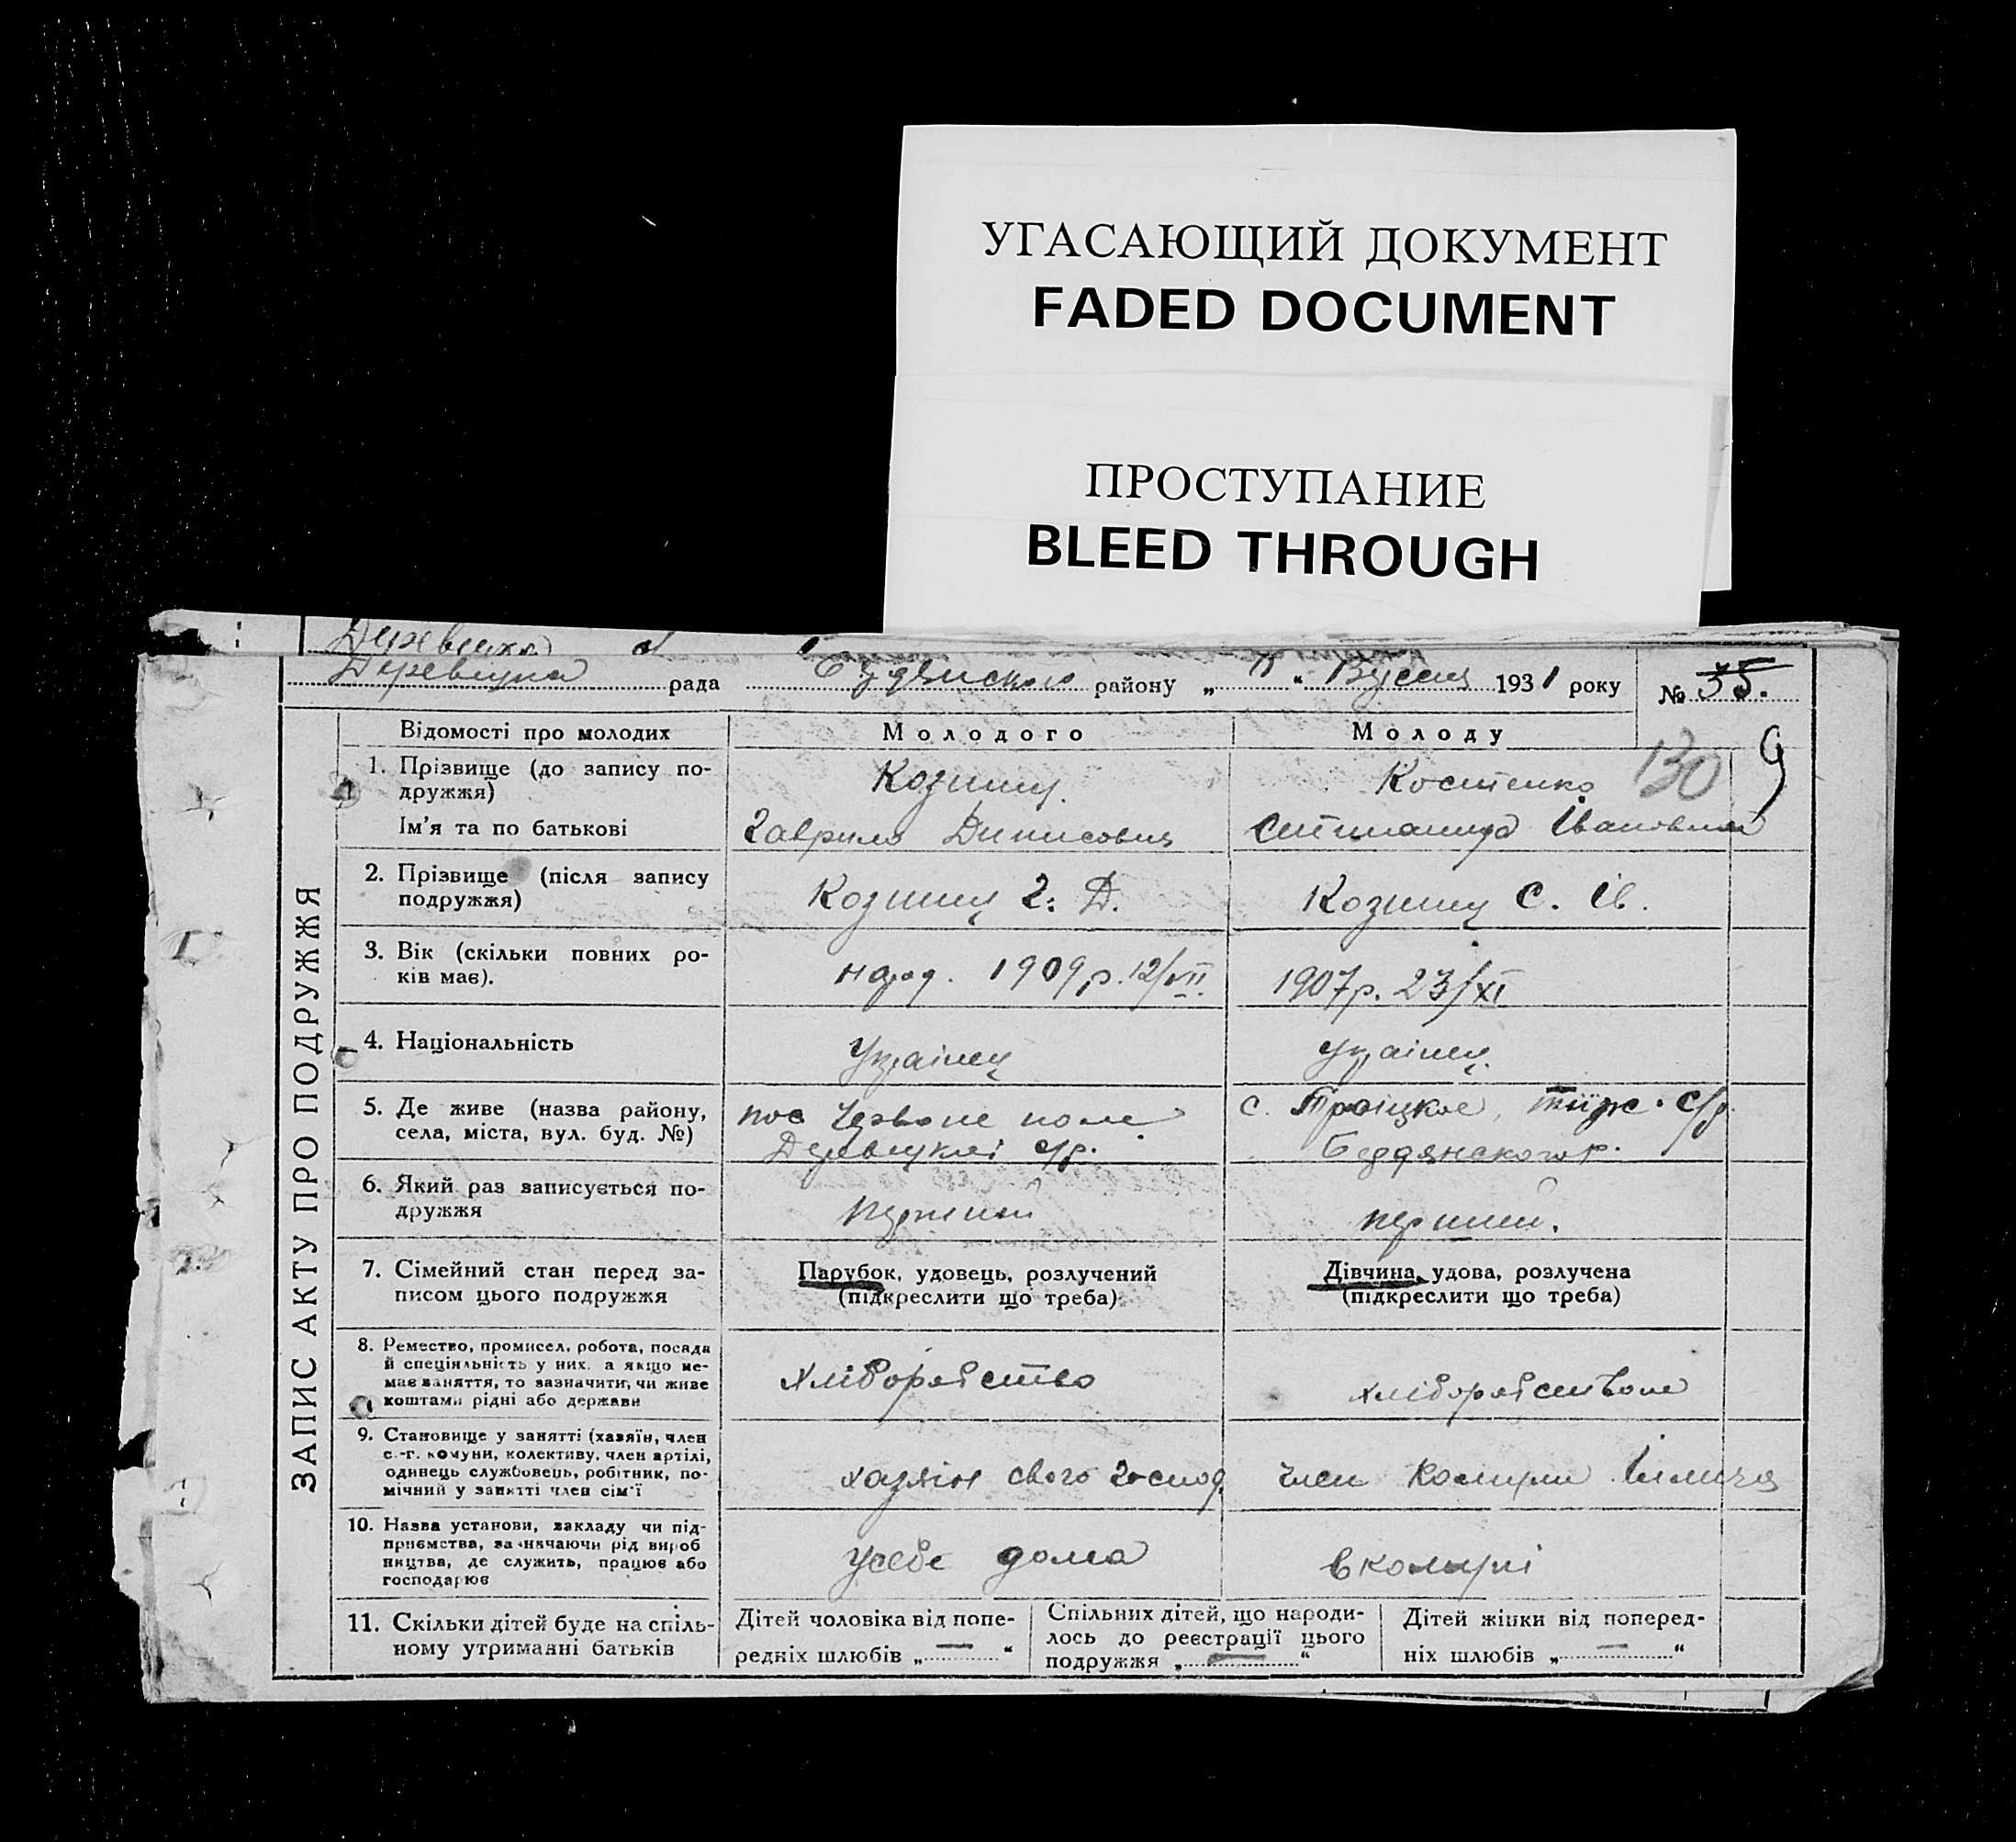 УГАСАЮЩИЙ ДОКУМЕНТ
FADED DOCUMENT
ПРОСТУПАНИЕ
BLEED THROUGH
рада району „ “ 1931 року № 35.
130 9
ЗАПИС АКТУ ПРО ПОДРУЖЖЯ
Відомості про молодих Молодого Молоду
1. Прізвище (до запису по-
дружжя)
Костенко
Ім'я та по батькові
Гаврило Денисович
Івановна
2. Прізвище (після запису
подружжя)
Г. Д.
С. Ів.
3. Вік (скільки повних ро-
ків має).
народ. 1909 р. 12/VII
1907 р. 23/XI
4. Національність
Українец
Українец.
5. Де живе (назва району,
села, міста, вул. буд. №)
пос Червоне поле
с/р.
с. Троіцкое, с/р.
Бердянского р.
6. Який раз записується по-
дружжя
перший
перший.
7. Сімейний стан перед за-
писом цього подружжя
Парубок, удовець, розлучений
(підкреслити що треба)
Дівчина, удова, розлучена
(підкреслити що треба)
8. Ремество, промисел, робота, посада
й спеціяльність у них, а якщо не-
має заняття, то зазначити, чи живе
коштами рідні або держави
хліборобство
хліборобством
9. Становище у занятті (хазяїн, член
с.-г. комуни, колективу, член артілі,
одинець службовець, робітник, по-
мічний у занятті член сім'ї
хазяін свого господ.
член комуни Ілліча
10. Назва установи, закладу чи під-
приємства, зазначаючи рід вироб
ництва, де служить, працює або
господарює
у себе дома
в комуні
11. Скільки дітей буде на спіль-
ному утриманні батьків
Дітей чоловіка від попе-
редніх шлюбів „ — “
Спільних дітей, що народи-
лось до реєстрації цього
подружжя „ — “
Дітей жінки від поперед-
ніх шлюбів „ — “